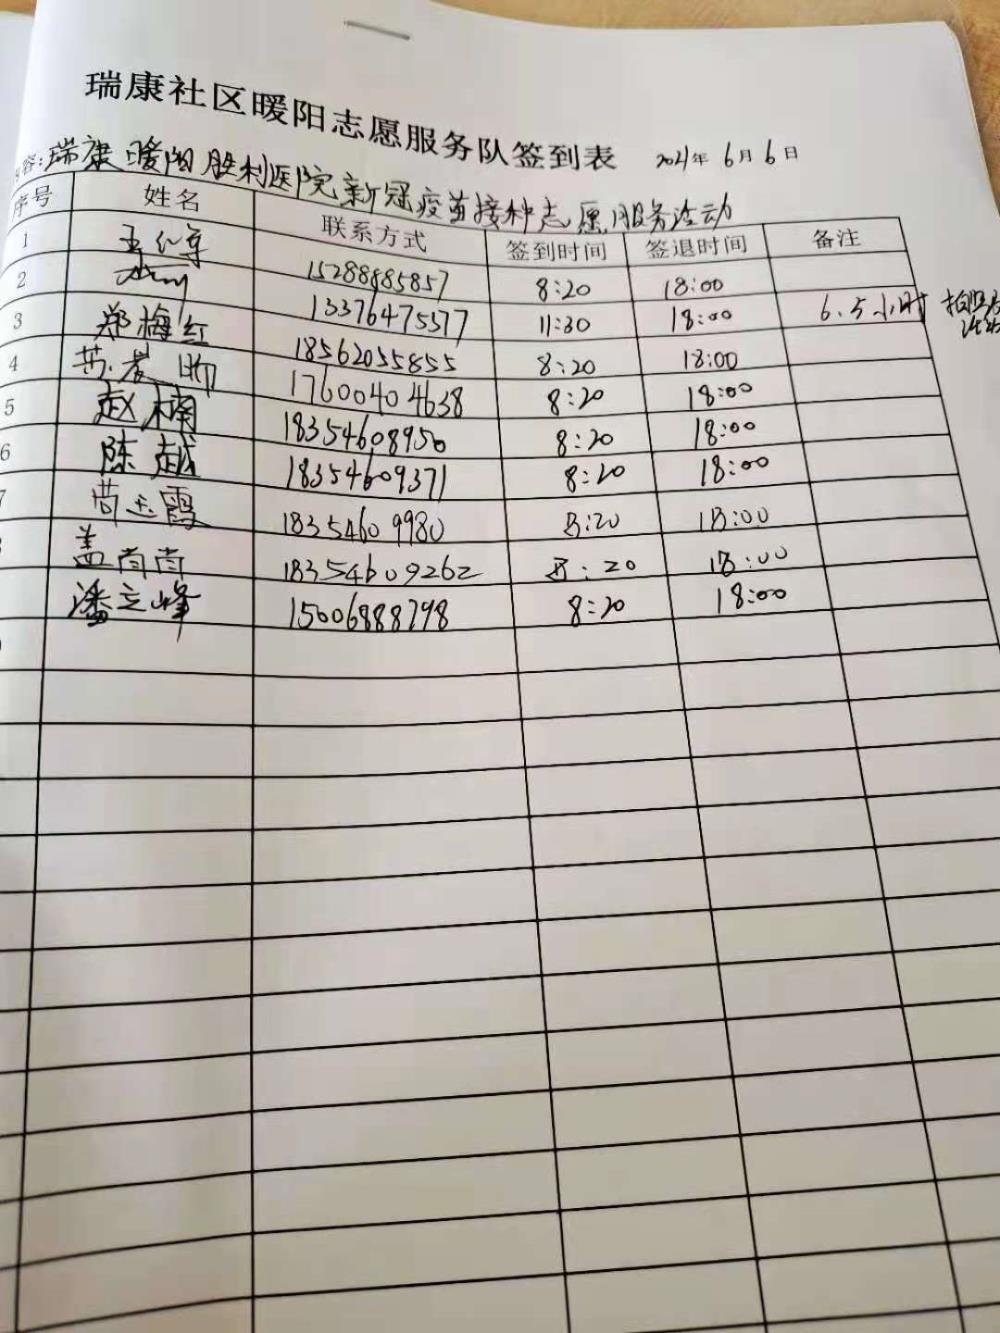 瑞康社区暖阳志愿服务队签到表 2021年6月6日
容:瑞康暖阳胜利医院新冠疫苗接种志愿服务活动
序号 姓名 联系方式 签到时间 签退时间 备注
1 15288885857 8:20 18:00
2 13376475577 11:30 18:00 6.5小时
3 郑海红 18562055855 8:20 18:00
4 17600404638 8:20 18:00
5 赵楠 18354608950 8:20 18:00
6 陈越 18354609371 8:20 18:00
7 玉霞 18354609980 8:20 18:00
盖尚尚 18354609262 8:20 18:00
潘立峰 15006888798 8:20 18:00